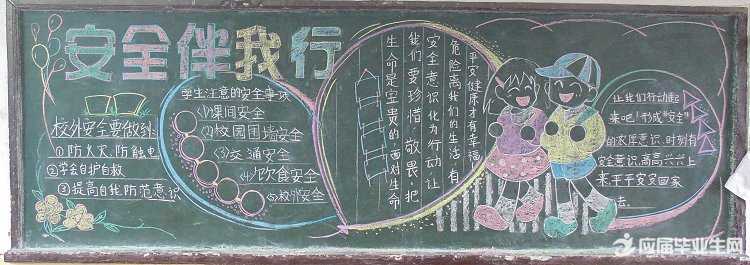 安全伴我行
校外安全要做到:
①防火灾、防触电
②学会自护自救
③提高自我防范意识
学生注意的安全事项
(1)课间安全
(2)校园围墙安全
(3)交通安全
(4)饮食安全
(5)校外安全
平安健康才有幸福,
危险离我们的生活,有
安全意识化为行动,让
我们要珍惜,敬畏,把
生命是宝贵的,面对生命
让我们行动起
来吧!形成"安全"
的浓厚意识,时刻有
安全意识,高高兴兴上
来,平平安安回家
去。
应届毕业生网